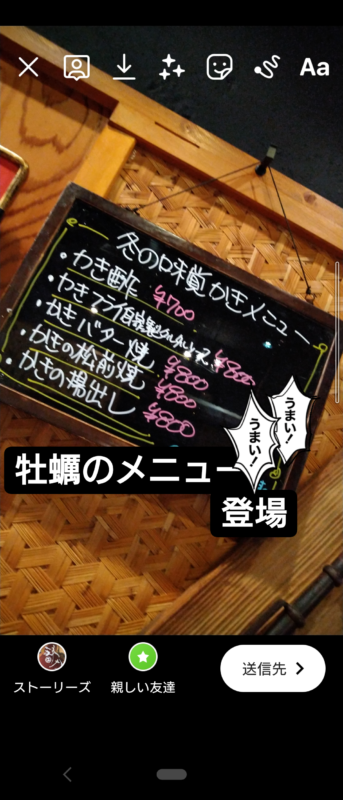 Aa
冬の味覚かきメニュー
・かき酢 ¥700
・かきフライ自家製タルタルソース ¥800
・かきバター焼 ¥800
・かきの松前焼 ¥800
・かきの湯出し ¥800
うまい!
うまい!
牡蠣のメニュー
登場
ストーリーズ
親しい友達
送信先